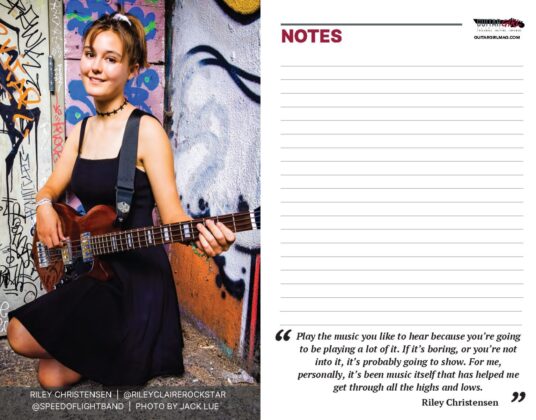 RILEY CHRISTENSEN | @RILEYCLAIREROCKSTAR
@SPEEDOFLIGHTBAND | PHOTO BY JACK LUE
GUITAR GIRL
GUITARGIRLMAG.COM
NOTES
“ Play the music you like to hear because you’re going
to be playing a lot of it. If it’s boring, or you’re not
into it, it’s probably going to show. For me,
personally, it’s been music itself that has helped me
get through all the highs and lows.
Riley Christensen ”